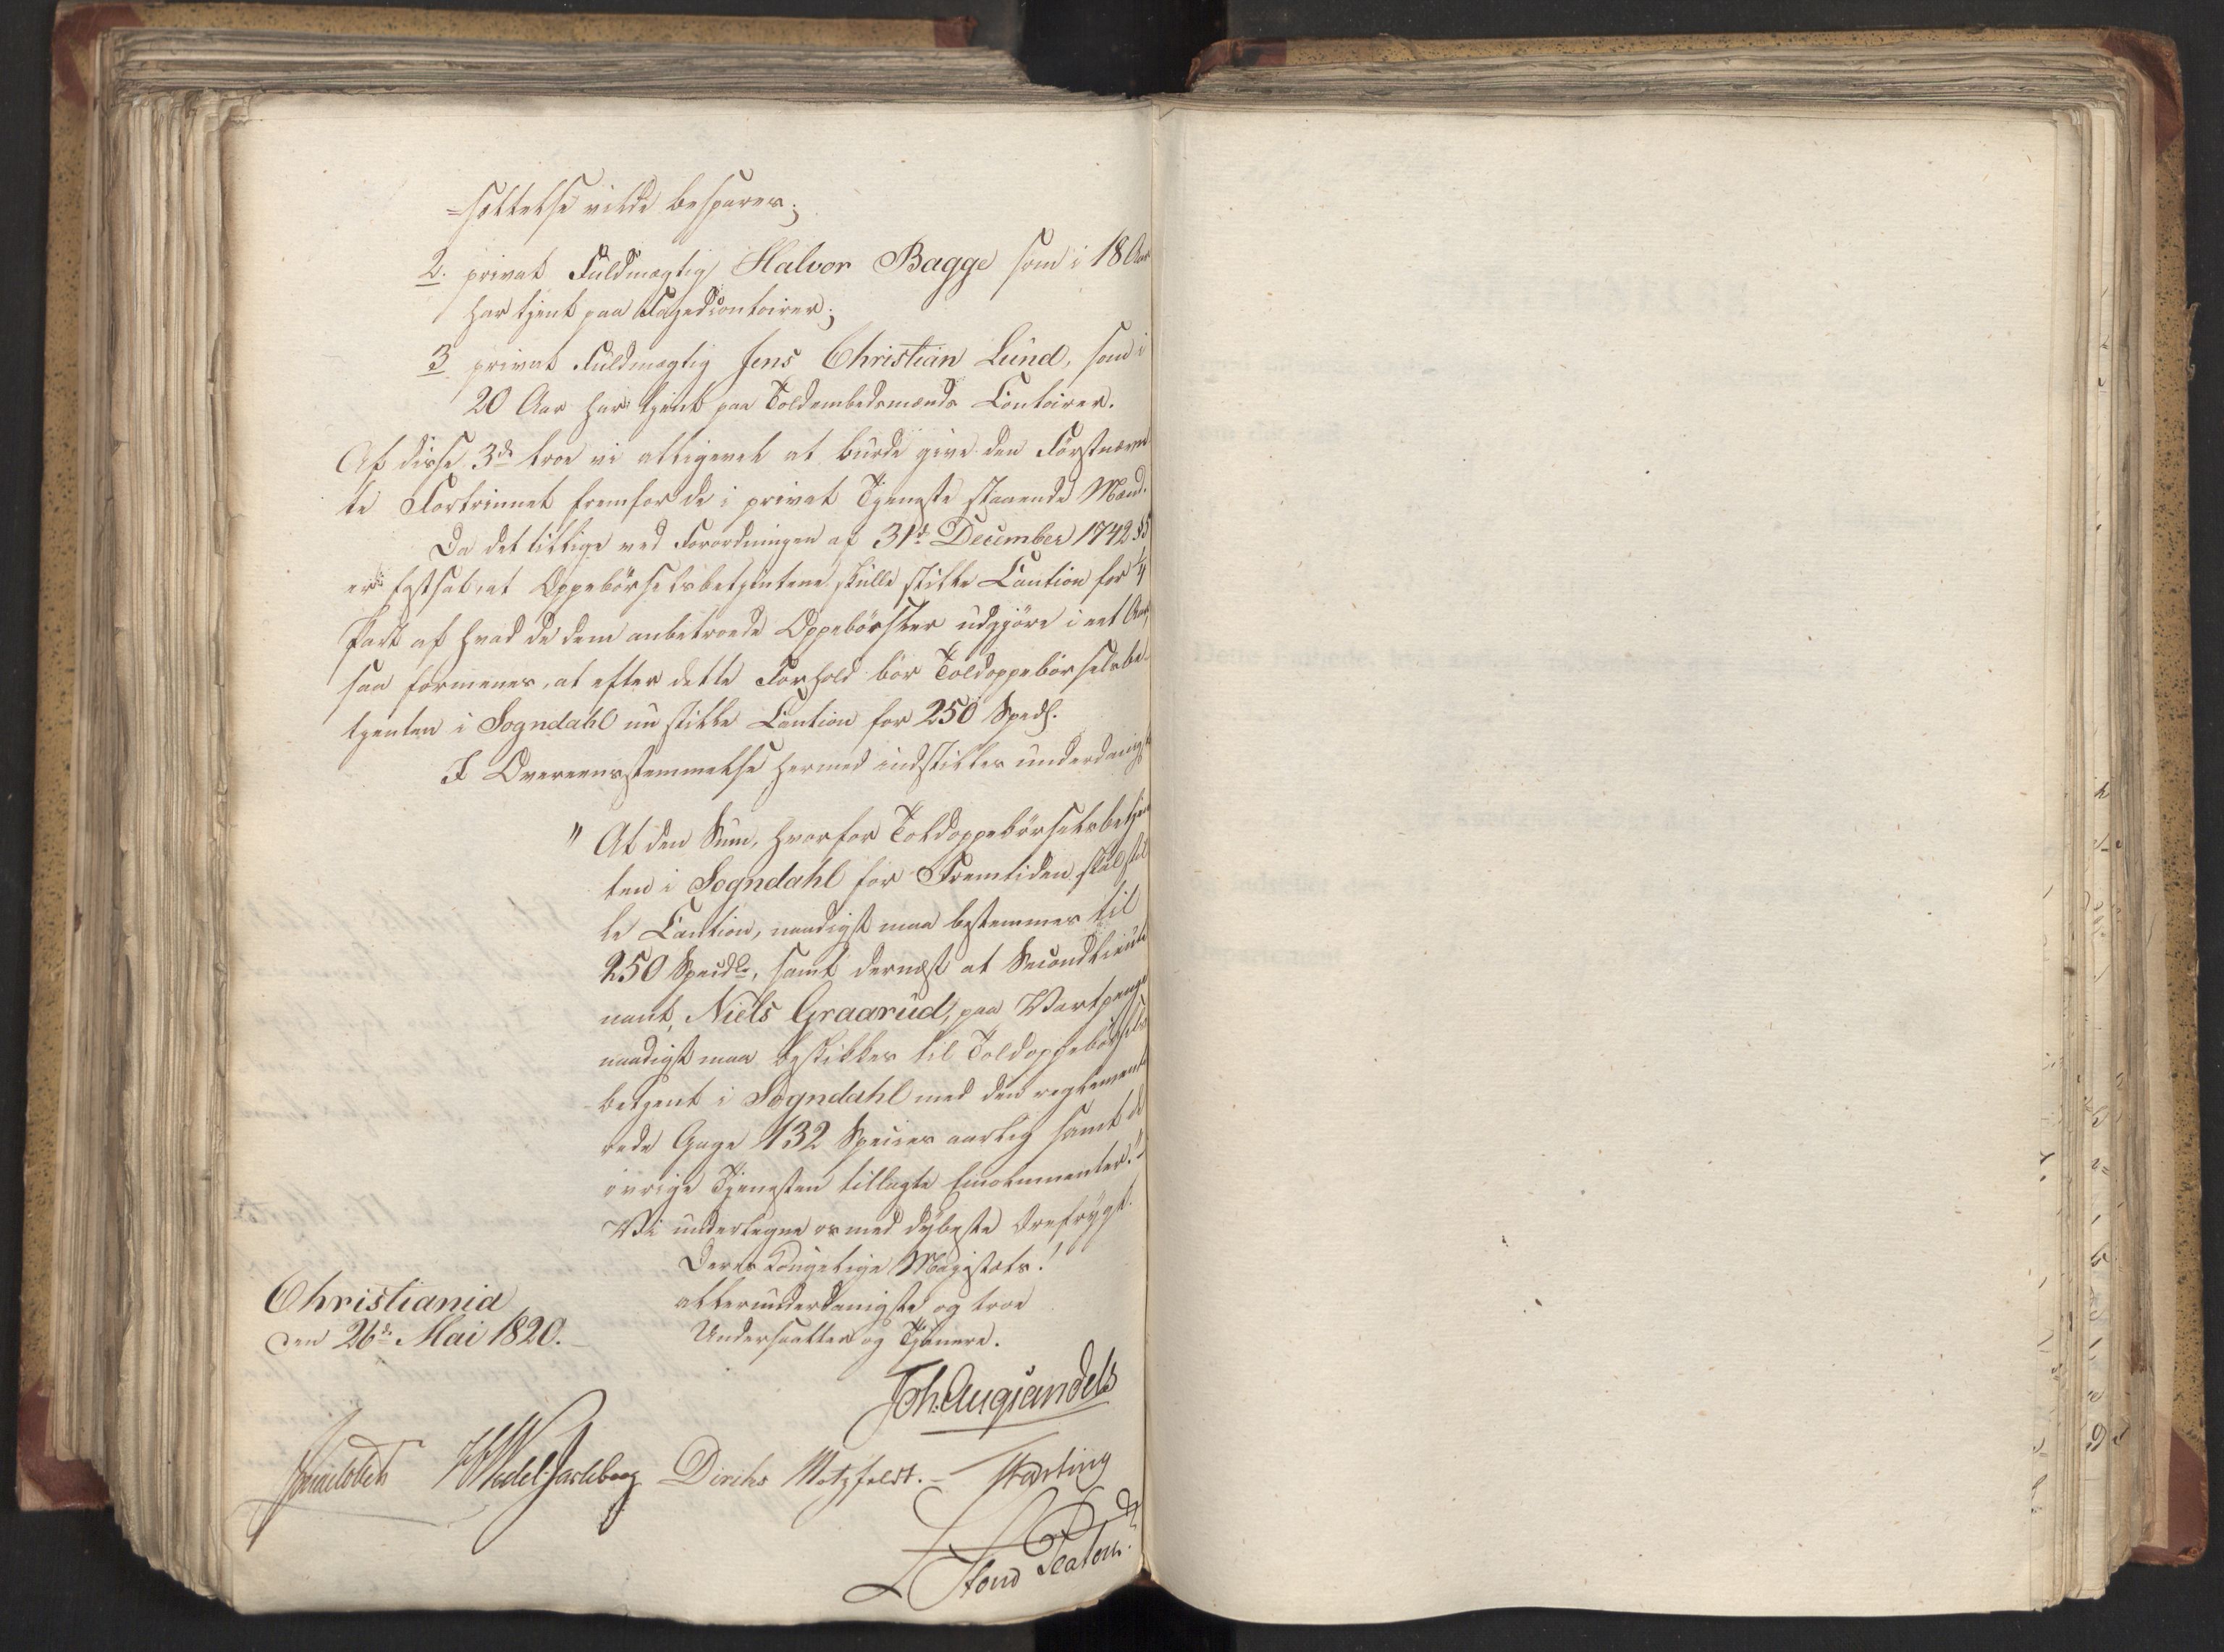 =sættelse vilde bespares;
2. privat Fuldmægtig Halvor Bagge som i 18 Aar
har tjent paa Fogedcontoirer;
3 privat Fuldmægtig Jens Christian Lund, som i
20 Aar har tjent paa Toldembedsmænds Contoirer.
Af disse 3de troe vi alligevel at burde give den Førstnævn
te Fortrinnet fremfor de i privat Tjeneste staaende Mænd.
Da det tillige ved Forordningen af 31te December 1742 §5
er fastsat, at Oppebørselsbetjentene skulle stille Caution for 1/4
Part af hvad de dem anbetroede Oppebørsler udgjøre i eet Aar,
saa formenes, at efter dette Forhold bør Toldoppebørselsbe-
tjenten i Sogndahl nu stille Caution for 250 Spdl.
I Overeensstemmelse hermed indstilles underdanigst
" At den Sum, hvorfor Toldoppebørselsbetjen
ten i Sogndahl for Fremtiden skal stil
le Caution, naadigst maa bestemmes til
250 Specdlr, samt dernæst at Secondlieute
nant, Niels Graarud, paa Vartpenge
naadigst maa beskikkes til Toldoppebørsels
betjent i Sogndahl med den reglemente
rede Gage 132 Species aarlig samt de
øvrige Tjenesten tillagte Emolumenter."
Vi undertegne os med dybeste Ærefrygt.
Deres Kongelige Majestæts!
allerunderdanigste og troe
Undersaatter og Tjenere.
Christiania
den 26de Mai 1820.
Joh. Aug. Sandels
HWedel Jarlsberg Diriks Motzfeldt. Fasting